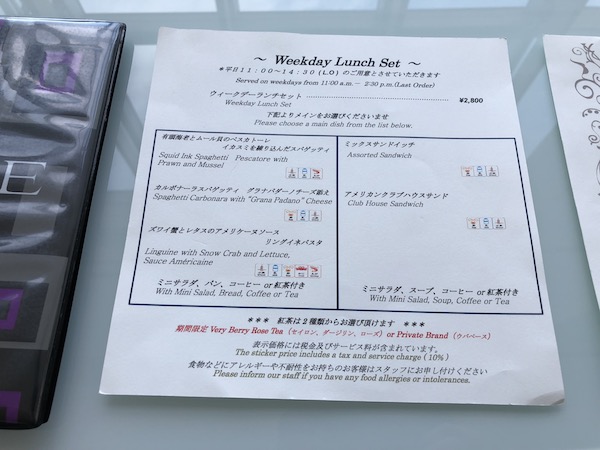 ～ Weekday Lunch Set ～
＊平日１１：００～１４：３０ (L.O) のご用意とさせていただきます
Served on weekdays from 11:00 a.m.－ 2:30 p.m.(Last Order)
ウィークデーランチセット ¥2,800
Weekday Lunch Set
下記よりメインをお選びくださいませ
Please choose a main dish from the list below.
有頭海老とムール貝のペスカトーレ
イカスミを練り込んだスパゲッティ
Squid Ink Spaghetti Pescatore with
Prawn and Mussel
カルボナーラスパゲッティ グラナパダーノチーズ添え
Spaghetti Carbonara with "Grana Padano" Cheese
ズワイ蟹とレタスのアメリケーヌソース
リングイネパスタ
Linguine with Snow Crab and Lettuce,
Sauce Américaine
ミニサラダ、パン、コーヒー or 紅茶付き
With Mini Salad, Bread, Coffee or Tea
ミックスサンドイッチ
Assorted Sandwich
アメリカンクラブハウスサンド
Club House Sandwich
ミニサラダ、スープ、コーヒー or 紅茶付き
With Mini Salad, Soup, Coffee or Tea
＊＊＊ 紅茶は２種類からお選び頂けます ＊＊＊
期間限定 Very Berry Rose Tea（セイロン、ダージリン、ローズ）or Private Brand（ウバベース）
表示価格には税金及びサービス料が含まれています。
The sticker price includes a tax and service charge ( 10% )
食物などにアレルギーや不耐性をお持ちのお客様はスタッフにお申し付けください
Please inform our staff if you have any food allergies or intolerances.
E